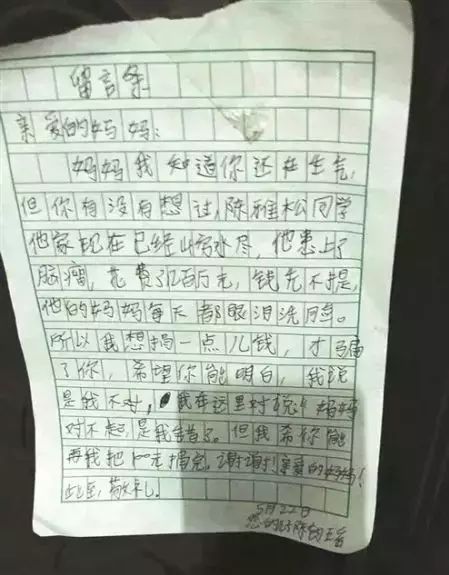 留言条
亲爱的妈妈:
妈妈我知道你还在生气,
但你有没有想过,陈雅松同学
他家现在已经山穷水尽,他患上了
脑瘤,花费了百万元,钱先不提,
他的妈妈每天都眼泪洗脸。
所以我想捐一点儿钱,才骗
了你,希望你能明白,我说
是我不对,我在这里对说妈妈
对不起,是我错了。但我希你能
再我把100元捐完,谢谢!亲爱的妈妈!
此至,敬礼.
5月22日